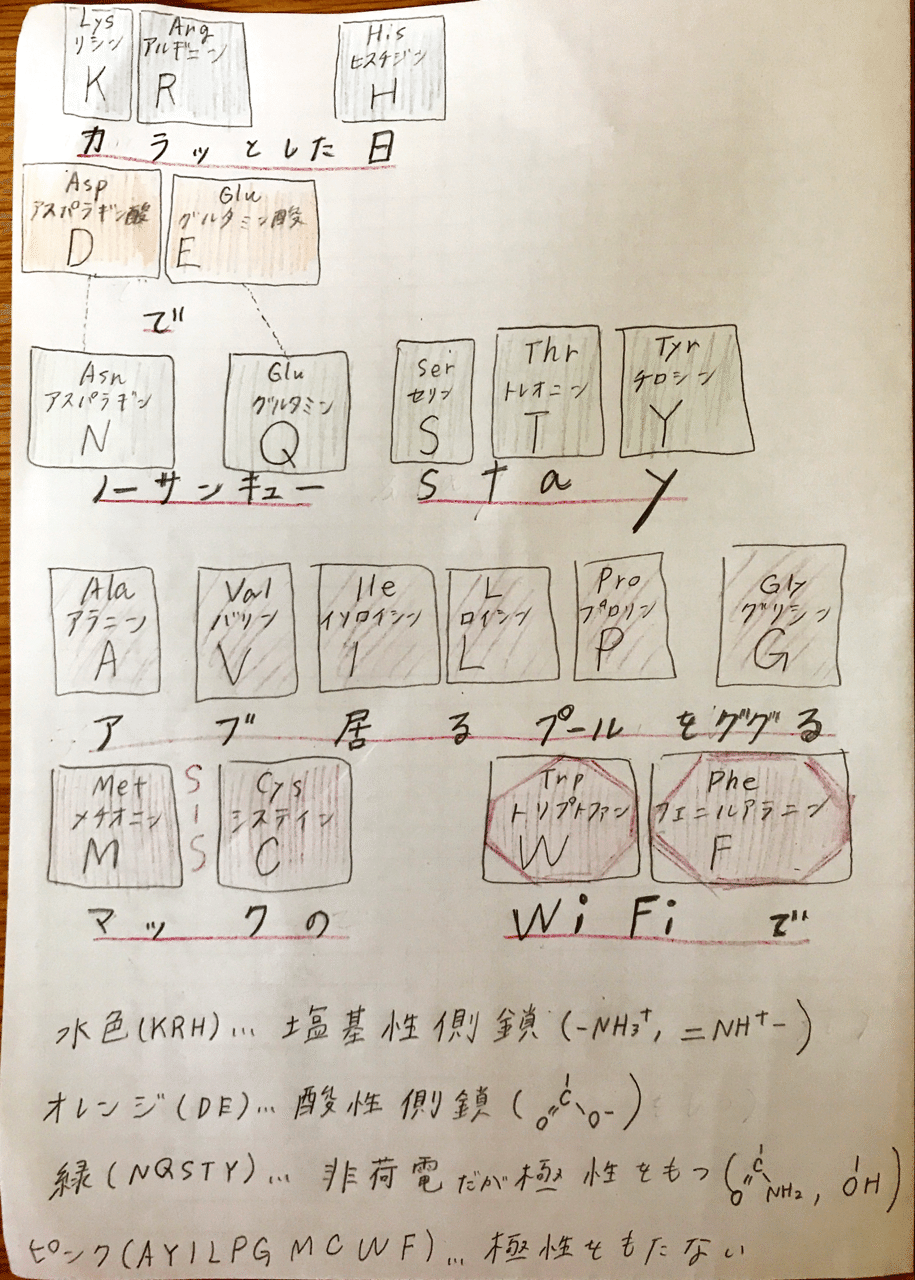 Lys Arg His
リシン アルギニン ヒスチジン
K R H
カラッとした日
Asp Glu
アスパラギン酸 グルタミン酸
D E
で
Asn Glu Ser Thr Tyr
アスパラギン グルタミン セリン トレオニン チロシン
N Q S T Y
ノーサンキュー stay
Ala Val Ile L Pro Gly
アラニン バリン イソロイシン ロイシン プロリン グリシン
A V I L P G
アブ居るプールをググる
Met S Cys Trp Phe
メチオニン I システイン トリプトファン フェニルアラニン
M S C W F
マックの WiFiで
水色(KRH)... 塩基性側鎖(-NH3+, =NH+-)
オレンジ(DE)... 酸性側鎖(O=C O-)
緑(NQSTY)... 非荷電だが極性をもつ(O=C NH2, OH)
ピンク(AYILPGMCWF)... 極性をもたない